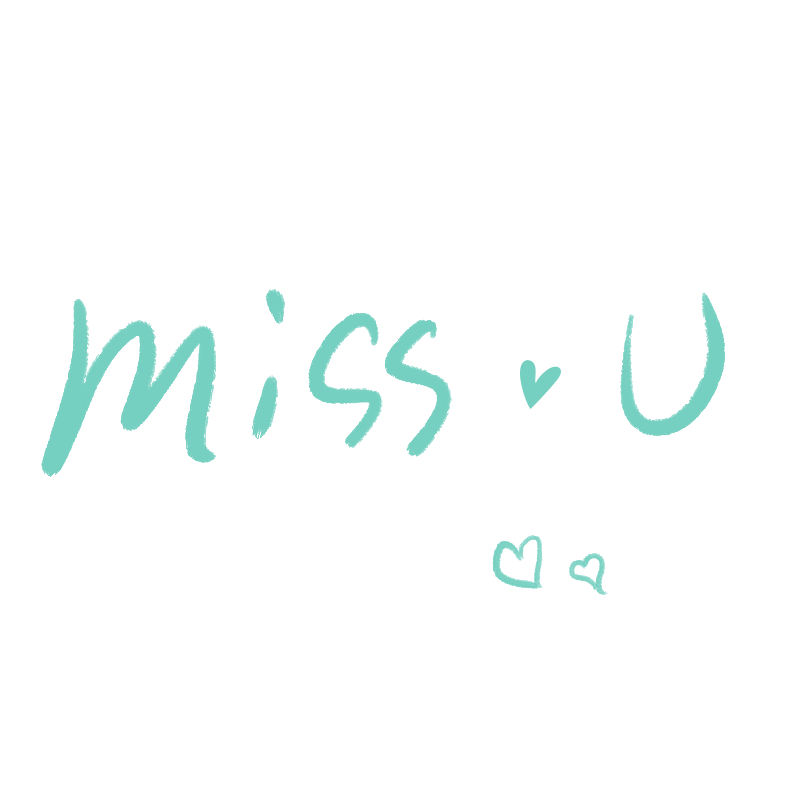 miss U